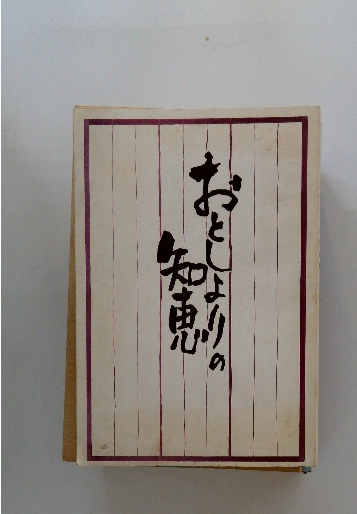 おとしよりの
知恵